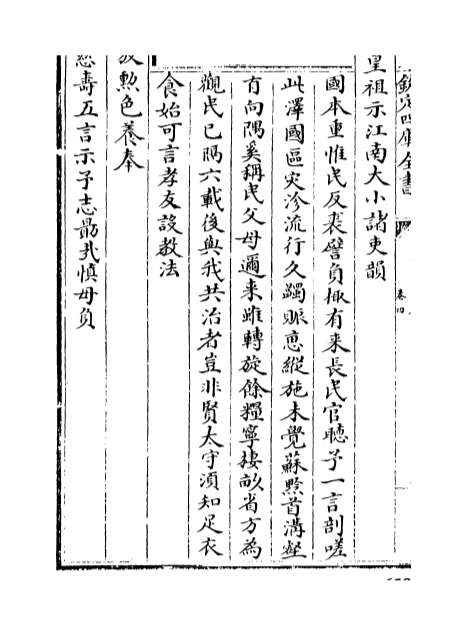 欽定四庫全書
卷四
皇祖示江南大小諸吏韻
國本重惟民反裘譬負楸有来長民官聽予一言剖嗟
此澤國區灾沴流行久蠲賑恵縱施未覺蘇黔首溝壑
有向隅奚稱民父母邇来雖轉旋餘糧寧棲畝省方為
觀民已隔六載後與我共治者豈非賢太守須知足衣
食始可言孝友設教法
放勲色養奉
慈壽五言示予志勗哉慎毋負